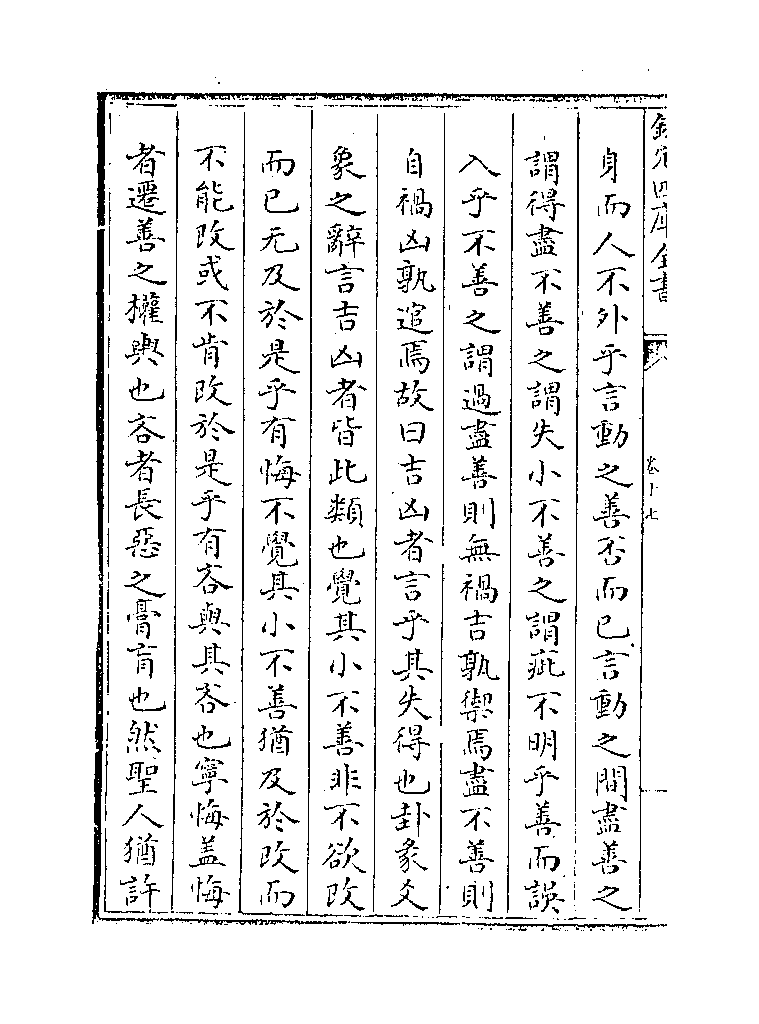 欽定四庫全書
卷十七
身而人不外乎言動之善否而已言動之間盡善之
謂得盡不善之謂失小不善之謂疵不明乎善而誤
入乎不善之謂過盡善則無禍吉孰禦焉盡不善則
自禍凶孰逭焉故曰吉凶者言乎其失得也卦彖爻
象之辭言吉凶者皆此類也覺其小不善非不欲改
而已无及於是乎有悔不覺其小不善猶及於改而
不能改或不肯改於是乎有吝與其吝也寧悔盖悔
者遷善之權輿也吝者長惡之膏肓也然聖人猶許